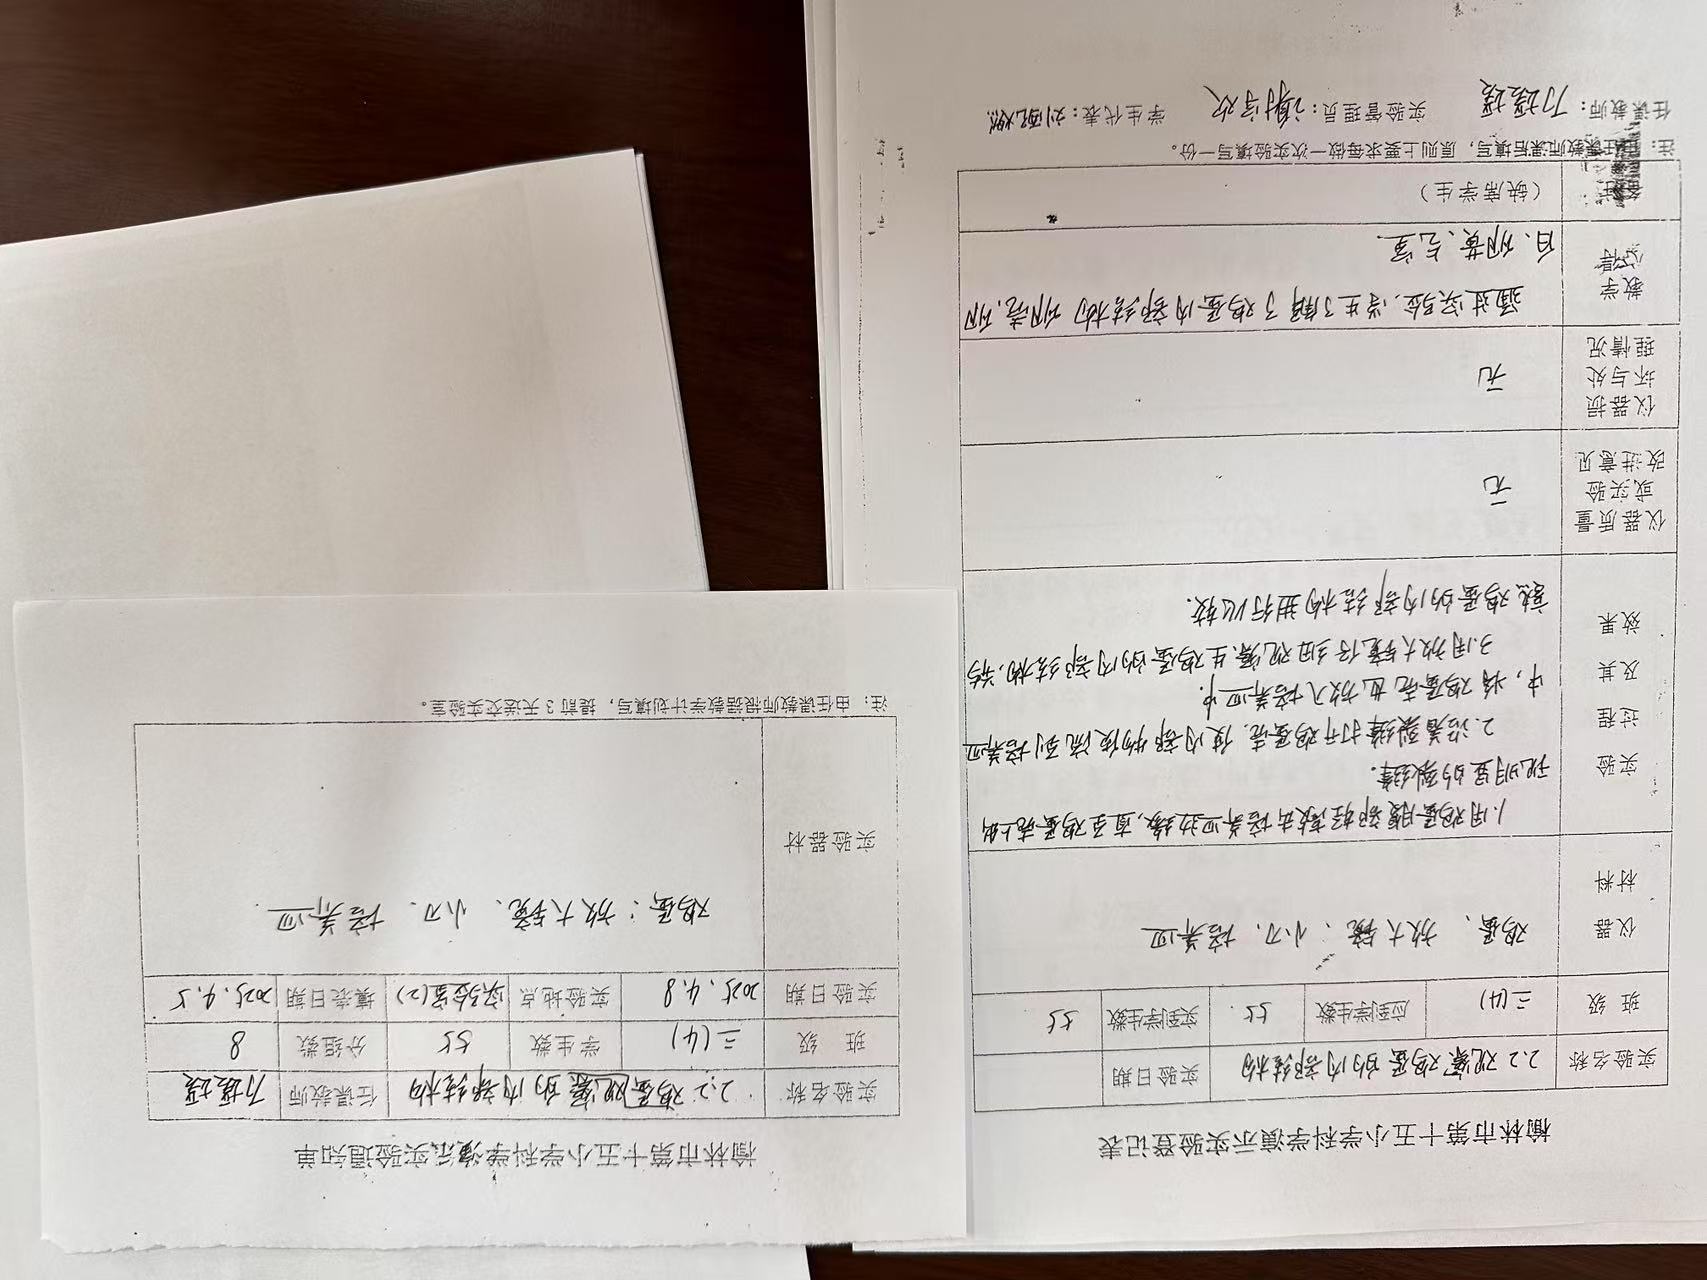 榆林市第十五小学科学演示实验通知单
实验名称 2.2 鸡蛋观察的内部结构 任课教师
班 级 三(4) 学生数 55 分组数 8
实验日期 2025.4.8 实验地点 实验室(2) 填表日期 2025.4.5
实验器材 鸡蛋：放大镜、小刀、培养皿
注：由任课教师根据教学计划填写，提前 3 天送交实验室。
榆林市第十五小学科学演示实验登记表
实验名称 2.2 观察鸡蛋的内部结构 实验日期
班 级 三(4) 应到学生数 55 实到学生数 55
仪器
材料
鸡蛋、放大镜、小刀、培养皿
实验
过程
及其
效果
1.用鸡蛋腹部轻敲击培养皿边缘,直至鸡蛋壳上出
现明显的裂缝.
2.沿着裂缝打开鸡蛋壳.使内部物质流到培养皿
中,将鸡蛋壳也放入培养皿中.
3.用放大镜仔细观察生鸡蛋的内部结构,
鸡蛋的内部结构进行比较.
仪器质量
或实验
改进意见
无
仪器损
坏与处
理情况
无
教学
心得
通过实验,学生了解了鸡蛋内部结构 卵壳、卵
白、卵黄、气室
备注
（缺席学生）
注：由任课教师课后填写，原则上要求每做一次实验填写一份。
任课教师： 实验管理员： 学生代表：刘